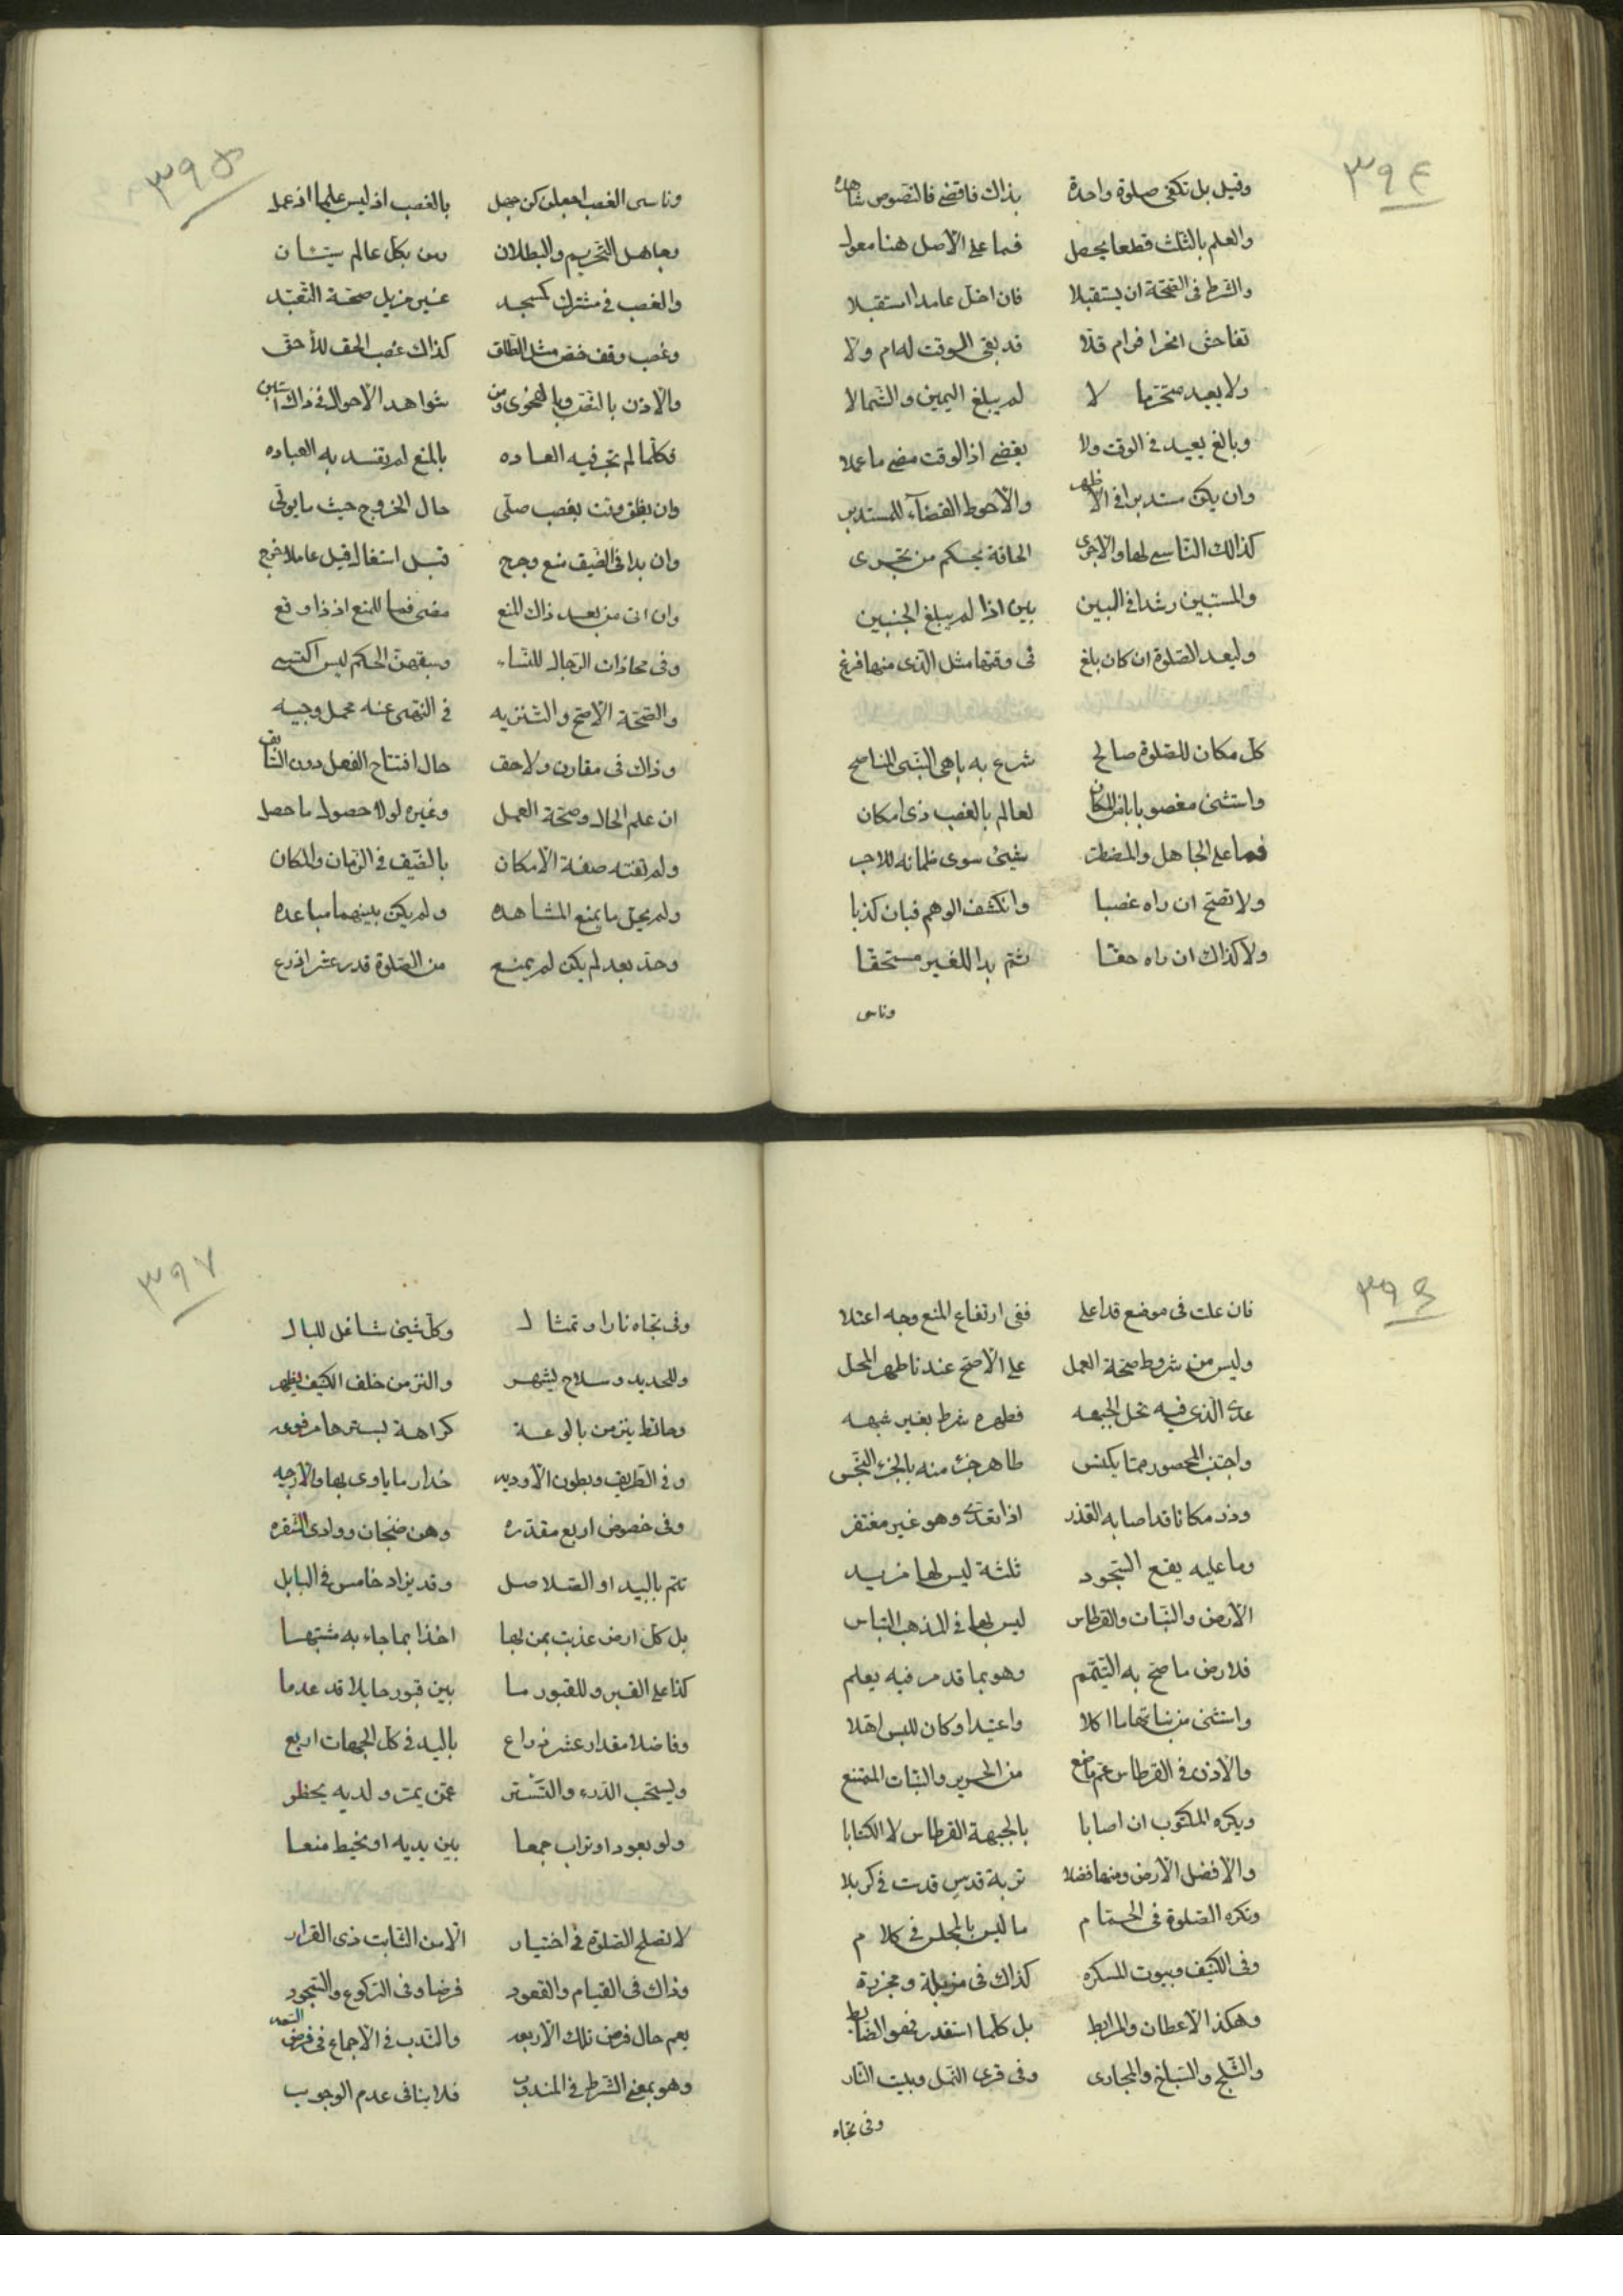 ٣٩٤
وقيل بل تكفى صلوة واحدة بذاك فاقضى فالنصوص شاهده
والعلم بالثلث قطعا يحصل فما على الاصل هنا معول
والشرط فى الصحة ان يستقبلا فان اخل عامدا استقبلا
قد بقى الوقت له ام ولا
ولا يعيد لا لم يبلغ اليمين والشمالا
وبالغ يعيد فى الوقت ولا يقضى اذا الوقت مضى ما عملا
وان يكن مستدبرا فى الاظهر والاحوط القضآء للمستدبر
كذالك الناسى لها والاحرى الحاقه بحكم من تحرى
والمستبين رشدا فى البين بين اذا لم يبلغ الجنبين
وليعد الصلوة ان كان بلغ فى وقتها مثل الذى منها فرغ
كل مكان للصلوة صالح شرع به باهى النبى الناصح
واستثنى مغصوبا باذن المكان لعالم بالغصب ذى امكان
فما على الجاهل والمضطر شيئ سوى ضمانه للاجر
ولا تصح ان راه غصبا وانكشف الوهم فبان كذبا
ولا كذاك ان راه حقا ثم بدا للغير مستحقا
وناس
٣٩٥
وناسى الغصب اجعلن كمن جهل بالغصب اذ ليس عليها اذ عمل
وجاهل التحريم والبطلان ومن بكل عالم سيان
والغصب فى مشترك كمسجد غير مزيل صحة التعبد
وغصب وقف خص مثل الطلق كذاك غصب الحق للأحق
والاذن بالنص وبالفحوى ومن شواهد الاحوال فى ذاك استبن
فكلما لم تجر فيه العاده بالمنع لم تفسد به العباده
وان يضق وقت بغصب صلى حال الخروج حيث ما يولى
وان بدا فى الضيق منع وحرج قبل اشتغال قيل عاملا خرج
وان اتى من بعد ذاك المنع مضى فما للمنع اذ ذا وقع
وفى محاذات الرجال للنساء وسبقهن الحكم ليس اكتسى
والصحة الاصح والتنزيه فى النهى عنه محمل وجيه
وذاك فى مقارن ولاحق حال افتتاح الفعل دون السابق
ان علم الحال وصحة العمل وغيره لولا حصول ما حصل
ولم تفته صفة الامكان بالضيق فى الزمان والمكان
ولم يحل ما يمنع المشاهده ولم يكن بينهما مباعده
وحد بعد لم يكن لم يمنع من الصلوة قدر عشر اذرع
٣٩٦
فان علت فى موضع قد اعلى ففى ارتفاع المنع وجه اعتلا
وليس من شروط صحة العمل على الاصح عندنا طهر المحل
عدى الذى فيه تحل الجبهه فطهره شرط بغير شبهه
واجتنب المحصور مما يكتنس طاهر جزء منه بالجزء النجس
وذر مكانا قد اصابه القذر اذا تعدى وهو غير مغتفر
وما عليه يقع السجود ثلثة ليس لها مزيد
الارض والنبات والقرطاس ليس بها فى المذهب التباس
فلارض ما صح به التيمم وهو بما قد مر فيه يعلم
واستثنى من نباتها ما اكلا واعتيد او كان للبس اهلا
والاذن فى القرطاس عم ما صنع من الحرير والنبات الممتنع
ويكره المكتوب ان اصابا بالجبهة القرطاس لا الكتابا
والافضل الارض ومنها فضلا تربة قدس قدست فى كربلا
وتكره الصلوة فى الحمام ما ليس بالمجلس فى كلام
وفى الكنيف وبيوت المسكره كذاك فى مزبلة ومجزرة
وهكذا الاعطان والمرابط بل كلما استقذر فهو الضابط
والثلج والسباخ والمجارى وفى قرى النمل وبيت النار
وفى تجاه
٣٩٧
وفى تجاه نار او تمثال وكل شيئ شاغل للبال
وللحديد وسلاح يشهر والنز من خلف الكنيف يظهر
وحائط ينز من بالوعة كراهة بسترها مرفوعه
وفى الطريق وبطون الاوديه حذار ما ياوى بها والارجيه
وفى خصوص اربع مقدره وهن ضجنان ووادى الشقره
تتم بالبيد او الصلاصل وقد يزاد خامس فى البابل
بل كل ارض عذبت بمن بها اخذا بما جاء به مشتبها
كذا على القبر وللقبور ما بين قبور حايلا قد عدما
وفاضلا مقدار عشر ذراع باليد فى كل الجهات اربع
ويستحب الدرء والتستر عمن يمر ولديه يحظر
ولو بعود او تراب جمعا بين يديه او بخيط منعا
لا تصلح الصلوة فى اختيار الا من الثابت ذى القرار
وذاك فى القيام والقعود فرضا وفى الركوع والسجود
يعم حال فرض تلك الاربعه والندب فى الاجماع فى فرض السعه
وهو بمعنى الشرط فى المندوب فلا ينافى عدم الوجوب